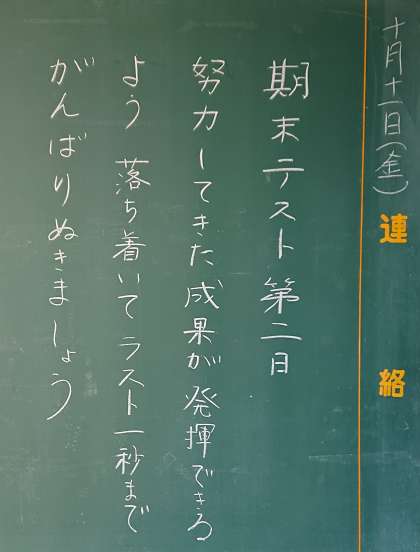 十月十一日(金)
連絡
期末テスト第二日
努力してきた成果が発揮できる
よう 落ち着いてラスト一秒まで
がんばりぬきましょう